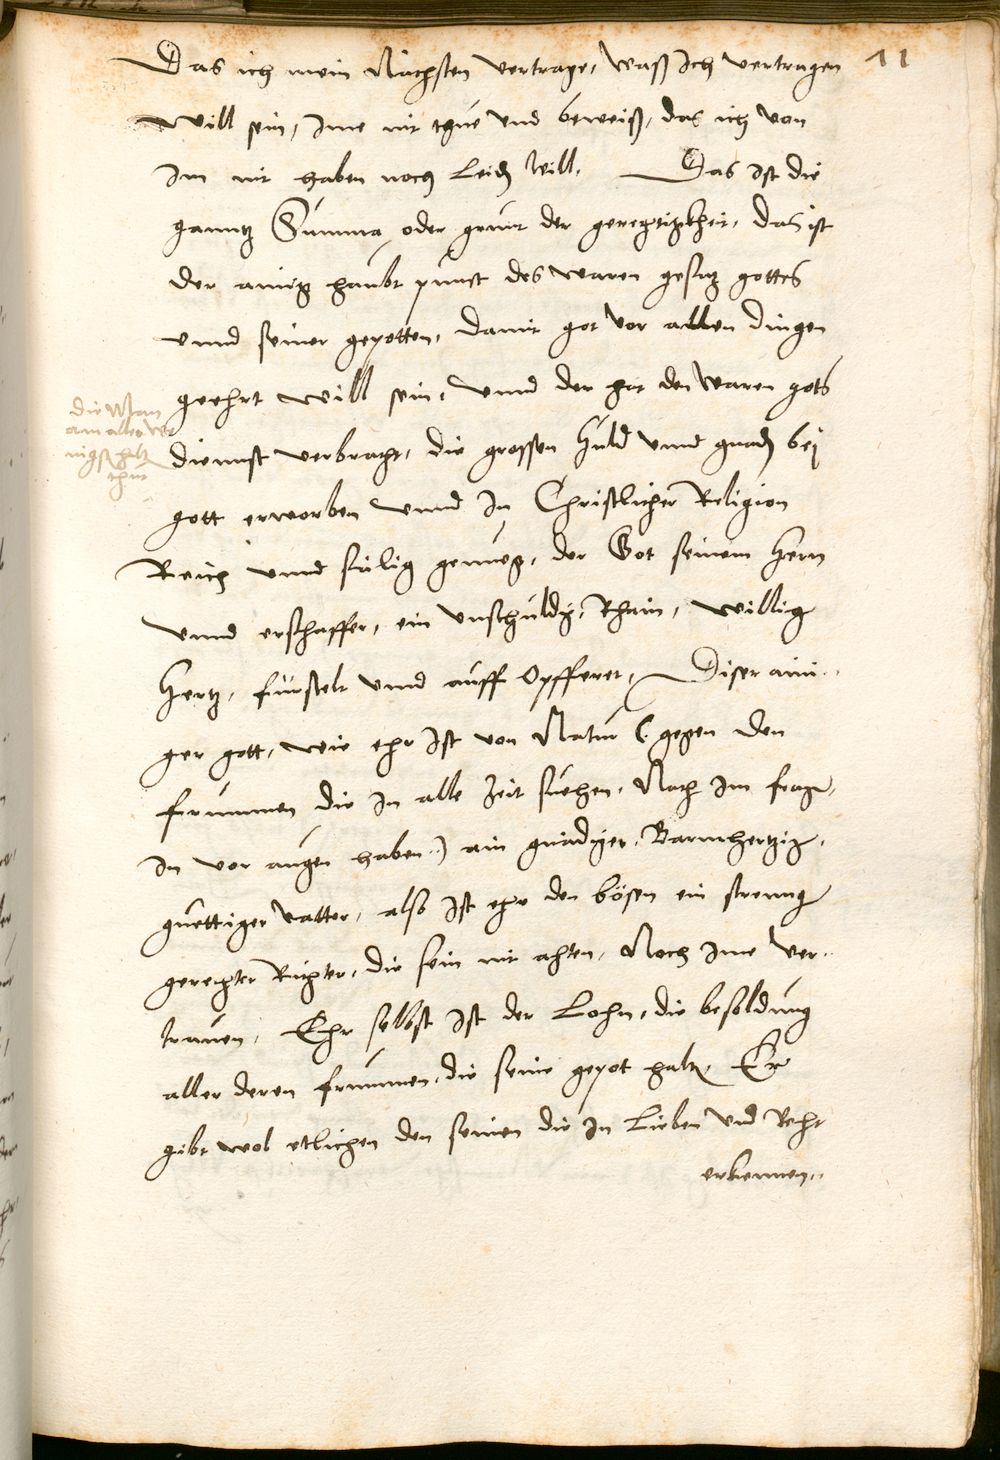 11
Das ich mein Nächsten vertrage, waß Ich vertragen
will sein, Ime nit thue vnd beweiß, das ich von
Im nit haben noch Leid will. Das Ist die
ganntz Summa oder grunt der gerechtigkheit, das ist
der ainig haubt punct des waren gesatz gottes
vnnd seiner gepotten, damit got vor allen dingen
geehrt will sein, vnnd der hat den waren gots
die Man
am aller we
nigst halt
thut
diennst verbracht, die grossen Huld vnnd gnad bej
gott erworben vnnd In Christlicher Religion
Reich vnnd sälig genueg, der Got seinem Hern
vnnd erschaffer, ein vnschuldig, Rhain, willig
Hertz, fürstelt vnnd auff Opfferet, Diser aini..
ger gott, wie ehr Ist von Natur (gegen den
frummen die In alle Zeit suchen, Nach Im frag,
In vor augen haben..) ain gnädiger, Barmhertzig,
guettiger vatter, also Ist ehr den bösen ein streng
gerechter Richter, die sein nit achten, Noch Ime ver..
trauen, Ehr selbst Ist der Lohn, die besoldung
aller deren frummen, die seine gepot halt, Er
gibt wol etlichen den seinen die In Lieben vnd Recht
erkennen..